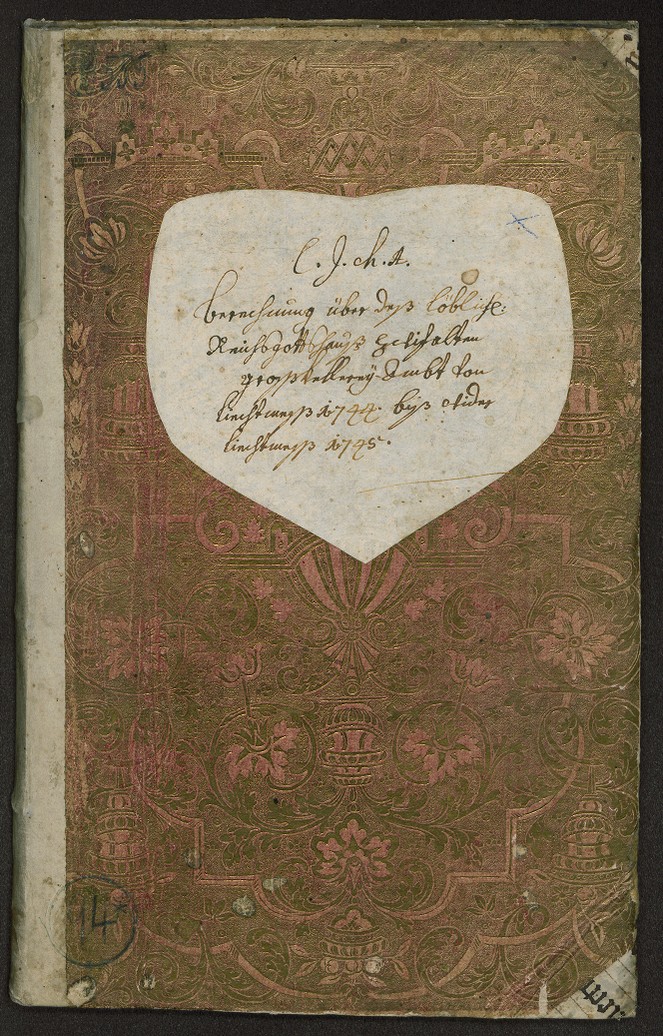 L. J. Ch. A.
Berechnung über deß löbliche:
Reichsgottshauß
großkellerey Ambt von
liechtmeß 1744. biß wider
liechtmeß 1745.
14